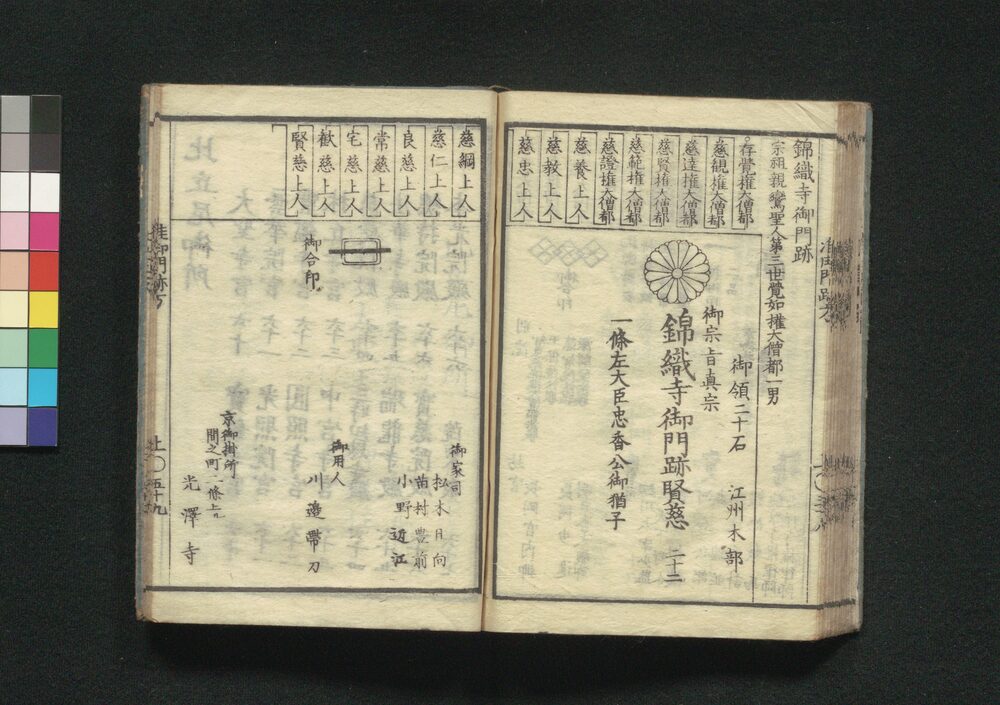 錦織寺御門跡
宗祖親鸞聖人第三世覺如權大僧都一男
存覺權大僧都
慈觀權大僧都
慈達權大僧都
慈賢權大僧都
慈範權大僧都
慈證權大僧都
慈養上人
慈教上人
慈忠上人
御領二十石 江州木部
御宗旨真宗
錦織寺御門跡賢慈 二十二
一條左大臣忠香公御猶子
慈綱上人
慈仁上人
良慈上人
常慈上人
宅慈上人
歓慈上人
賢慈上人
御合印
御家司
松木日向
苗村豊前
小野近江
御用人
川邉帶刀
京御掛所
間之町二條上ル
光澤寺
准御門跡方
上〇五十九